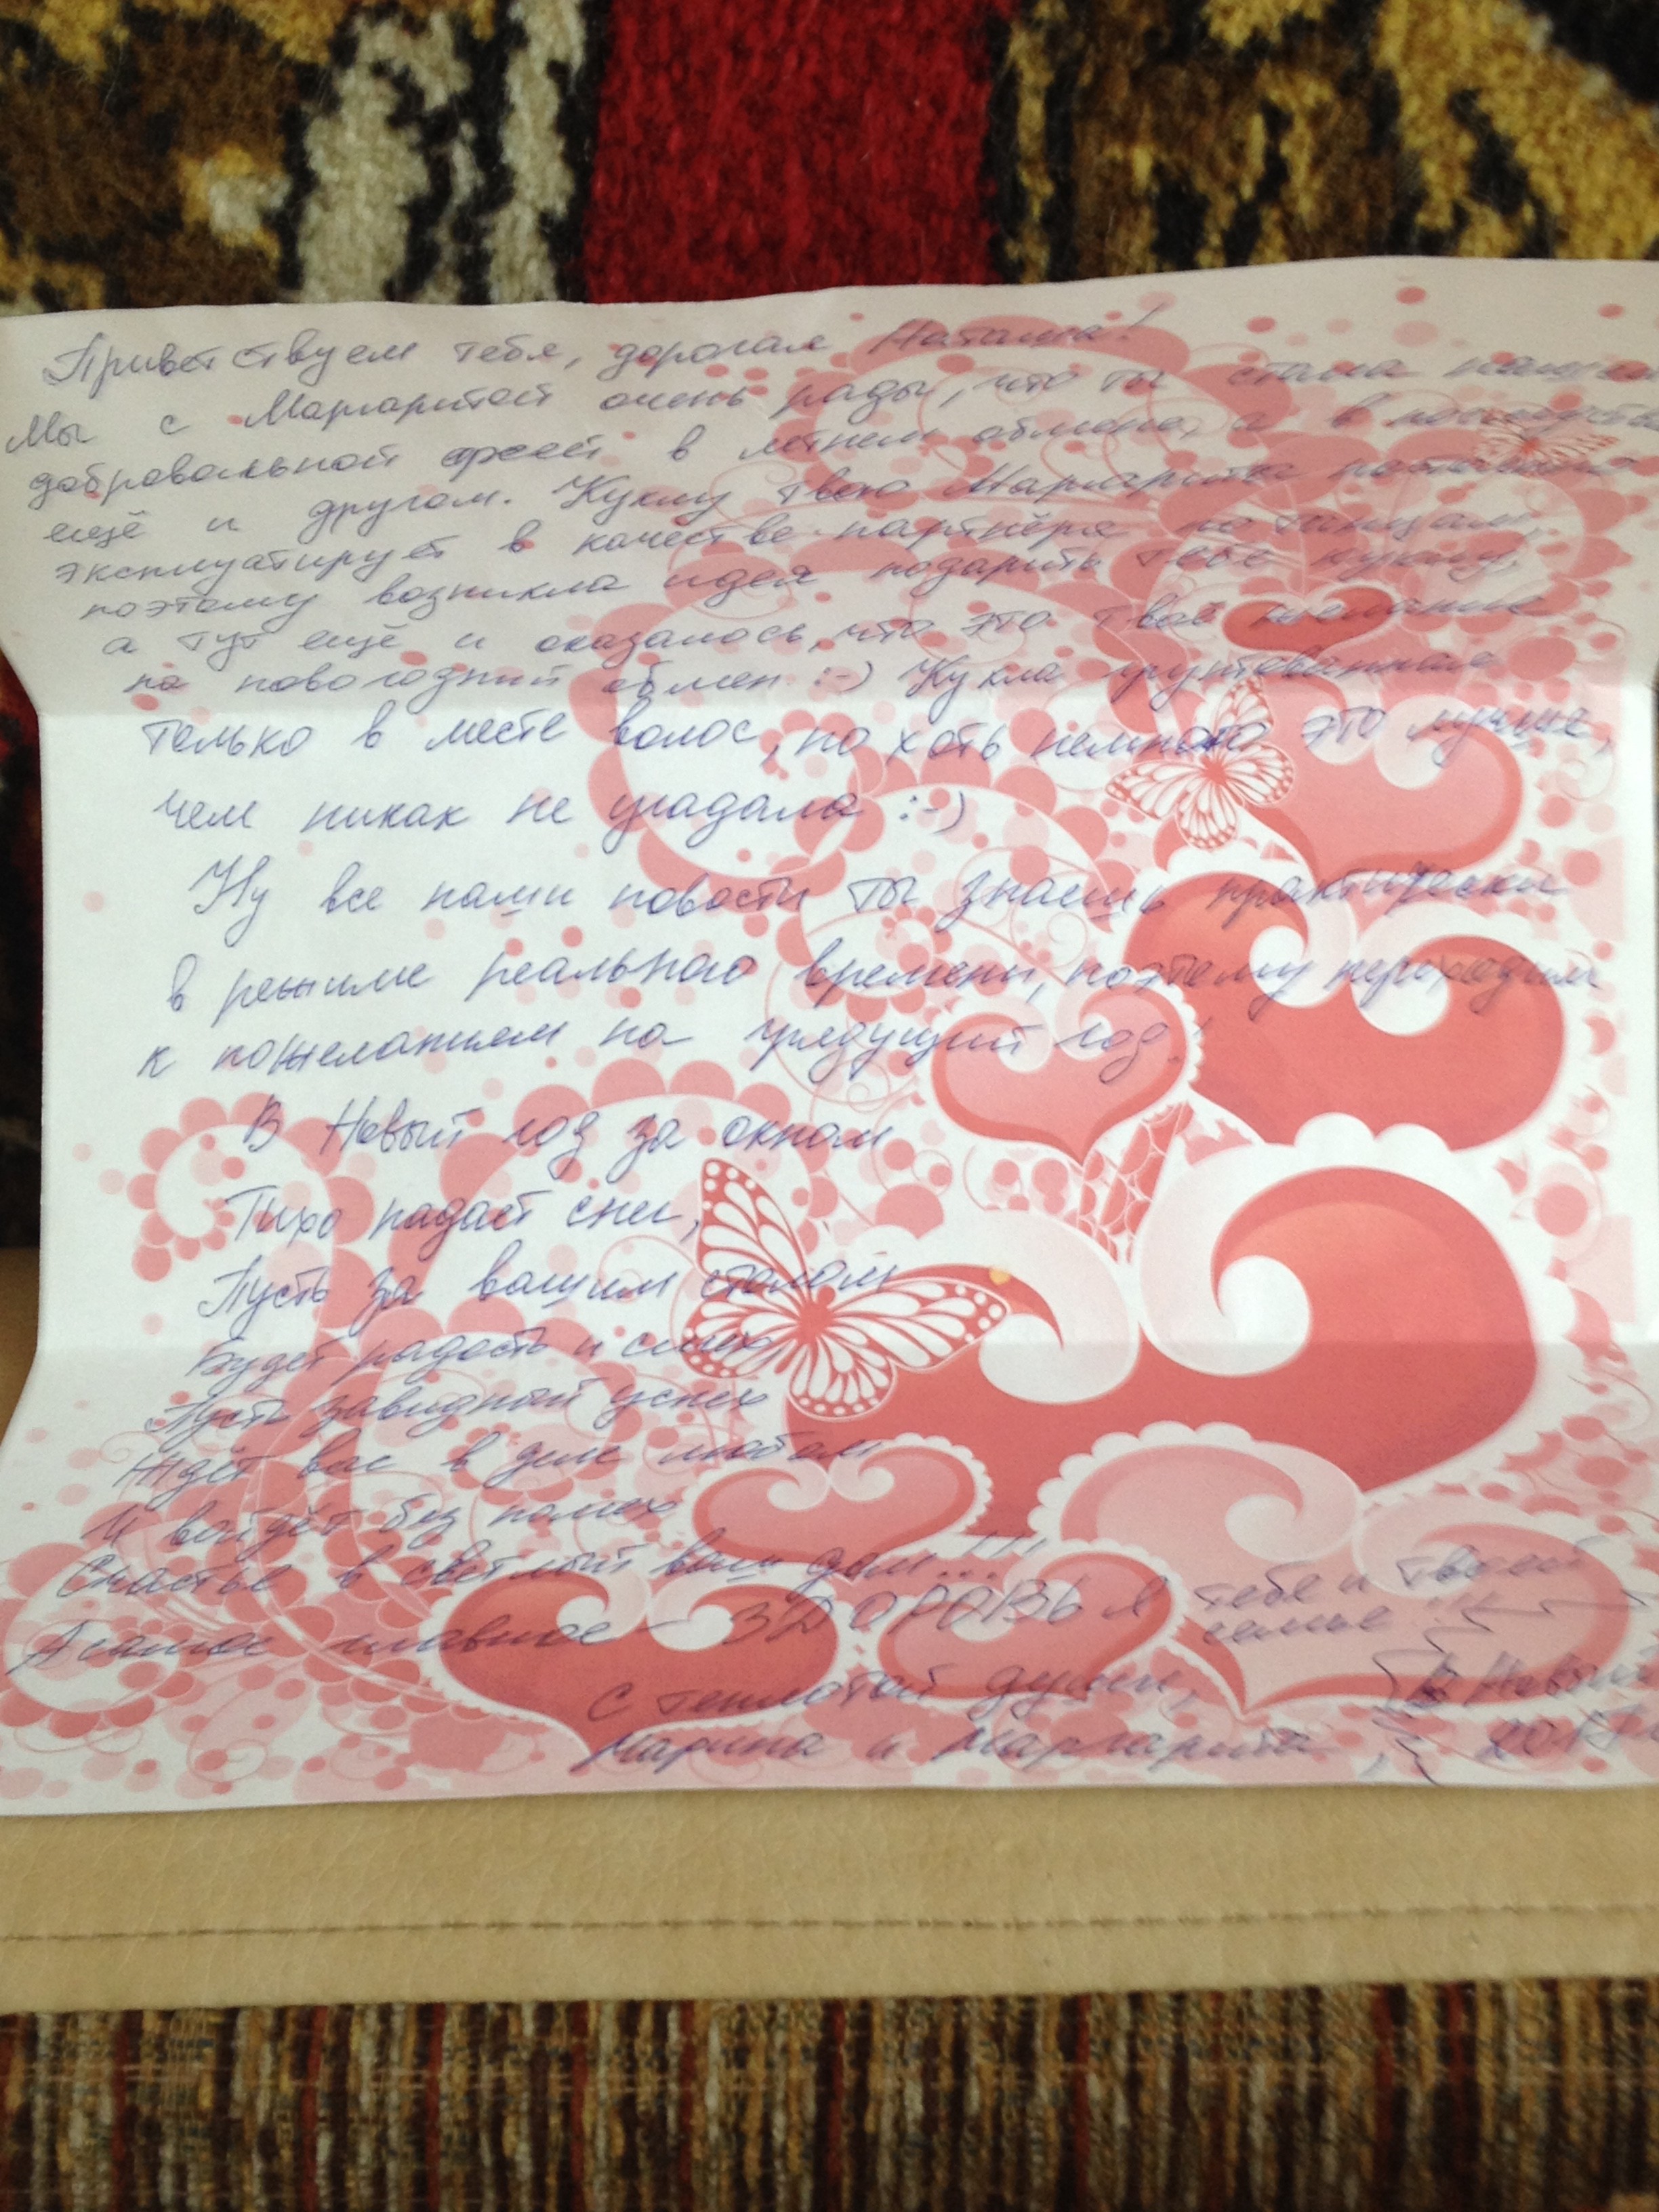 Приветствуем тебя, дорогая Наташа!
Мы с Маргаритой очень рады, что ты стала нашей
добровольной феей в летнем обмене, а в
ещё и другом. Куклу твою Маргаритка
эксплуатирует в качестве партнёра по танцам,
поэтому возникла идея подарить тебе куклу,
а тут ещё и оказалось, что это твоё желание
на новогодний обмен :-) Кукла грунтованная
только в месте волос, но хоть немного это лучше,
чем никак не угадала :-)
Ну все наши новости ты знаешь практически
в режиме реального времени, поэтому переходим
к пожеланиям на грядущий год!
В Новый год за окном
Тихо падает снег,
Пусть за вашим столом
Будет радость и смех
Пусть завидный успех
Ждёт вас в деле любом
И войдёт без помех
Счастье в светлый ваш дом...!!!
А самое главное - ЗДОРОВЬЯ тебе и твоей
семье
С теплотой души,
Марина и Маргарита,
В Новый